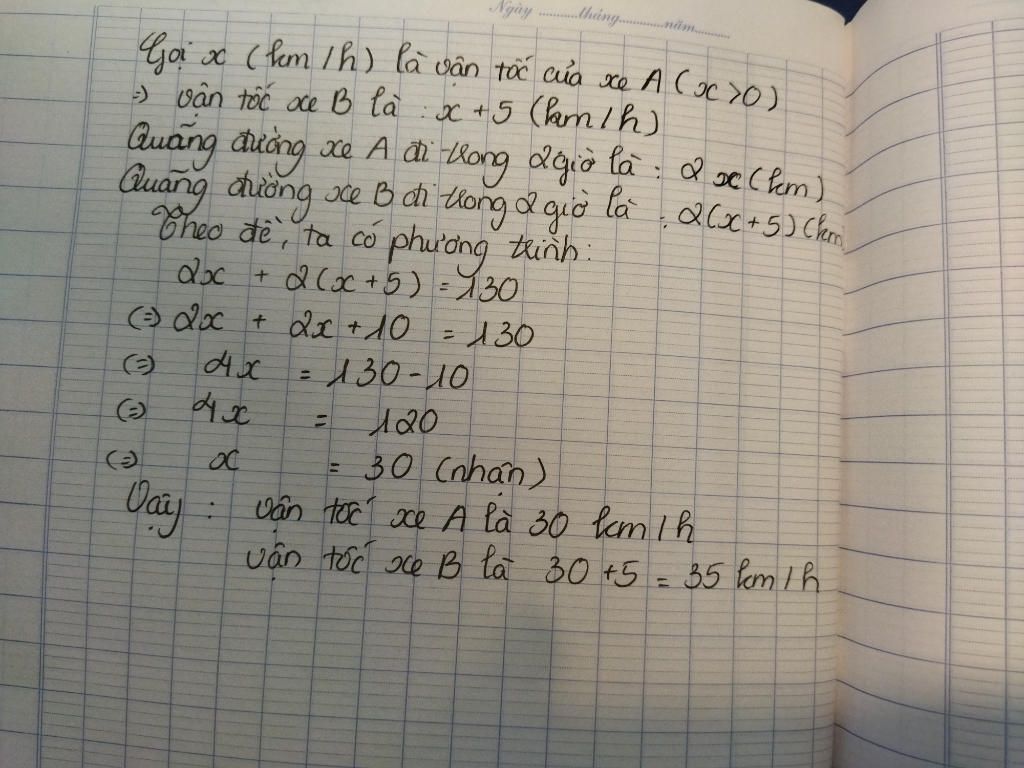 Ngày ...........tháng.............năm...........
Gọi x (km/h) là vận tốc của xe A (x>0)
=> vận tốc xe B là : x + 5 (km/h)
Quãng đường xe A đi trong 2 giờ là : 2x (km)
Quãng đường xe B đi trong 2 giờ là : 2(x+5) (km
Theo đề, ta có phương trình:
2x + 2(x+5) = 130
(=) 2x + 2x + 10 = 130
(=) 4x = 130 - 10
(=) 4x = 120
(=) x = 30 (nhận)
Vậy : vận tốc xe A là 30 km/h
vận tốc xe B là 30 + 5 = 35 km/h